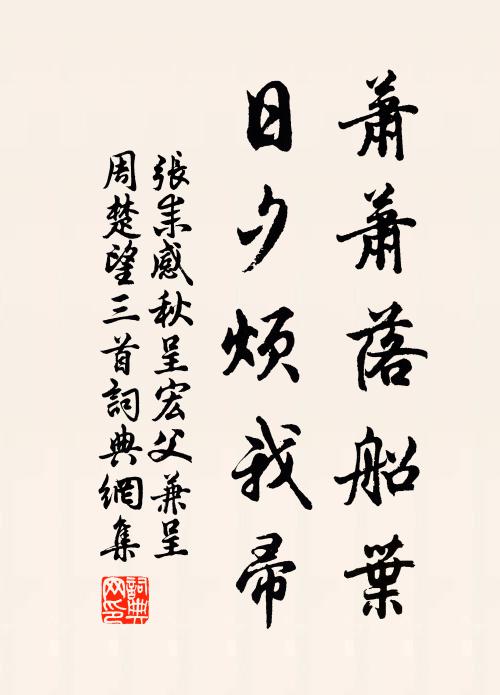 蕭蕭落船葉
日夕煩我帚
張耒感秋呈宏父兼呈
周楚望三首詞典網集
詞典網印